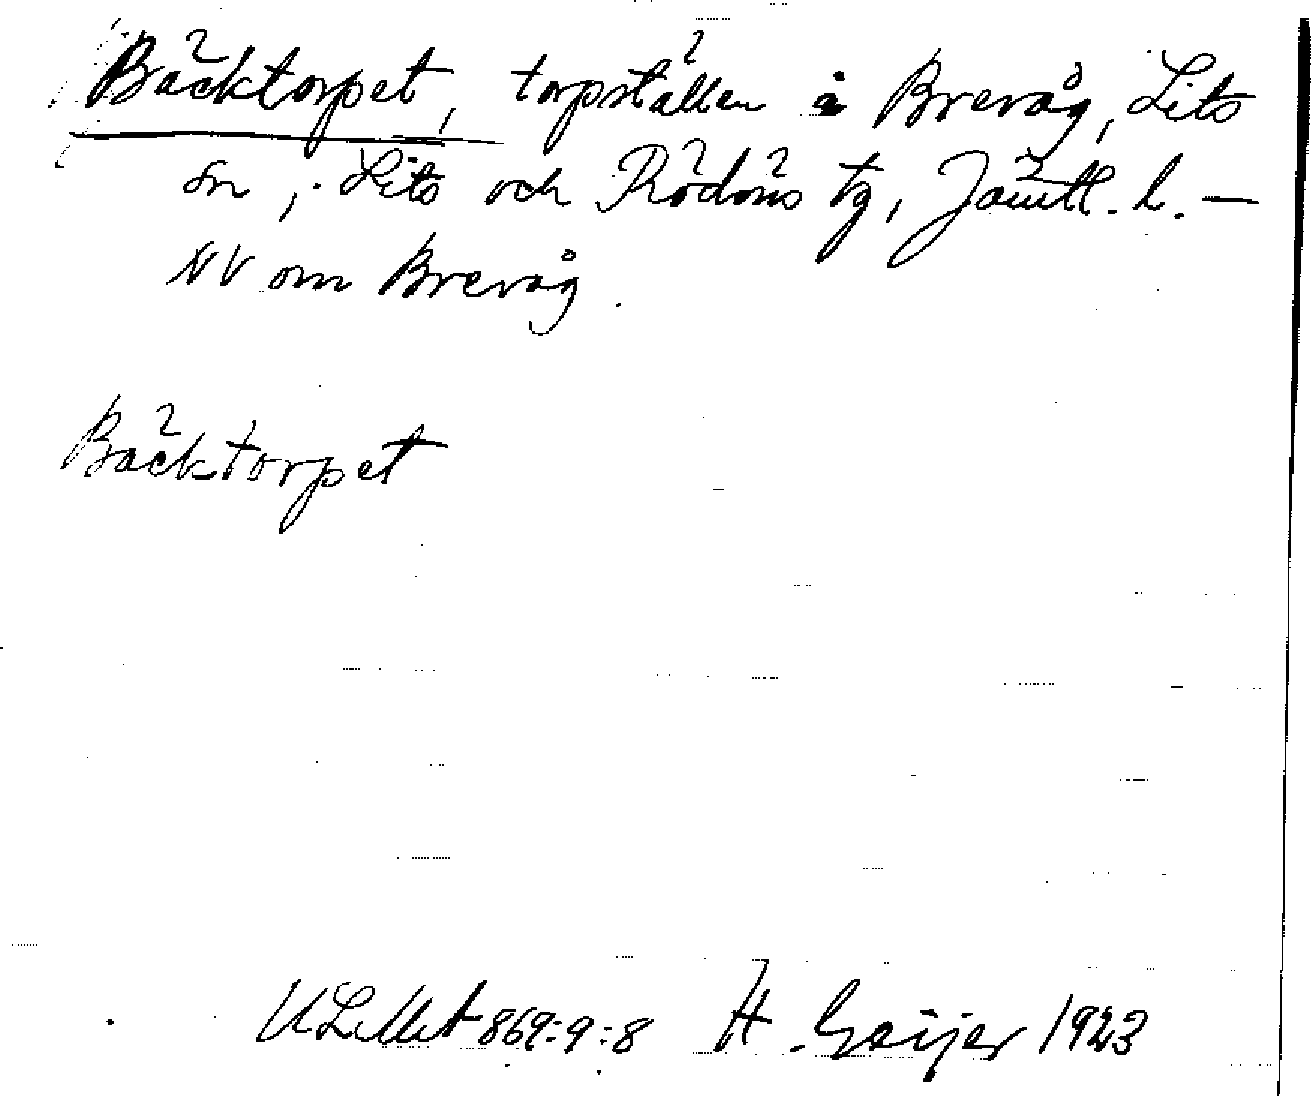 Bäcktorpet, torpställen i Brevåg, Lits
sn, Lits och Rödöns tg, Jämtl. l. —
NV om Brevåg.
Bäcktorpet
869:9:8 H. Geijer 1923